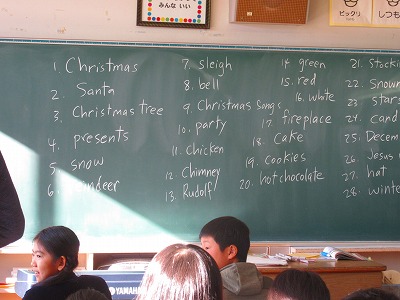 みんな いい
ビックリ
しつも
1. Christmas
2. Santa
3. Christmas tree
4. presents
5. snow
6. reindeer
7. sleigh
8. bell
9. Christmas Songs
10. party
11. Chicken
12. Chimney
13. Rudolf
14. green
15. red
16. white
17. fireplace
18. Cake
19. Cookies
20. hot chocolate
21. Stocki
22. Snown
23. stars
24. cand
25. Decem
26. Jesus
27. hat
28. winte
YAMAHA